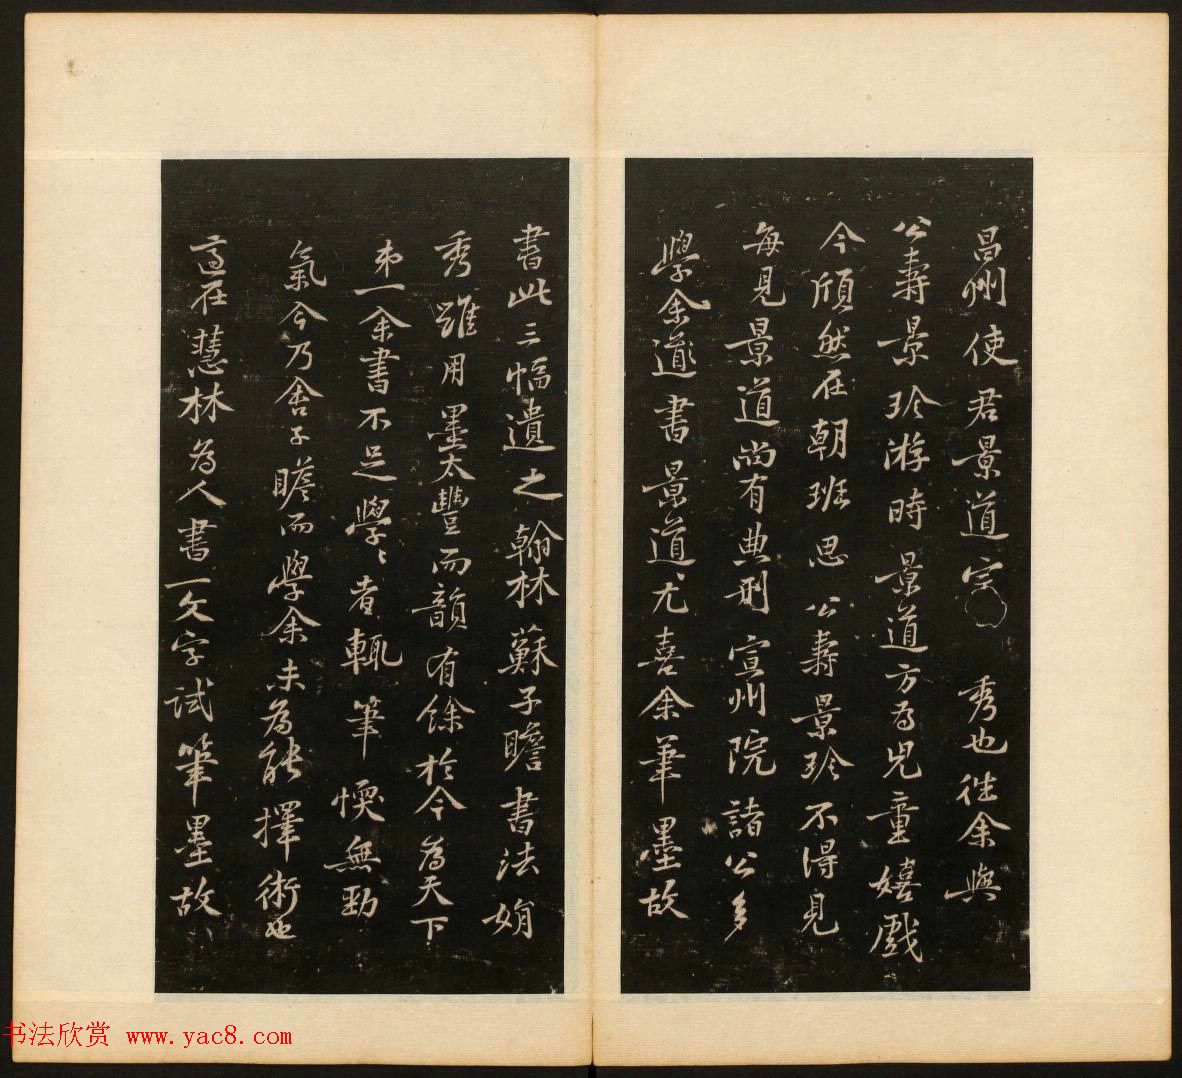 昌州使君景道宗秀也往余與
公壽景珍游時景道方為兒童嬉戲
今頎然在朝班思公壽景珍不得見
每見景道尚有典刑宣州院諸公多
學余書景道尤喜余筆墨故
書此三幅遺之翰林蘇子瞻書法娟
秀雖用墨太豐而韻有餘於今為天下
第一余書不足學學者輒筆愞無勁
氣今乃舍子瞻而學余未為能擇術也
適在慧林為人書一文字試筆墨故
书法欣赏 www.yac8.com